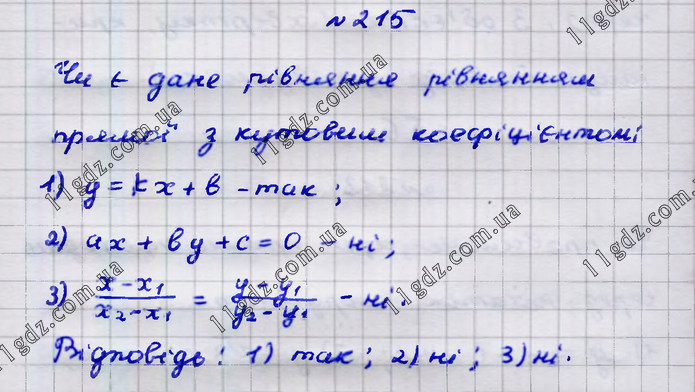 №215
Чи є дане рівняння рівнянням
прямої з кутовим коефіцієнтом:
1) y = kx + b - так;
2) ax + by + c = 0 - ні;
3) (x - x₁)/(x₂ - x₁) = (y - y₁)/(y₂ - y₁) - ні.
Відповідь: 1) так; 2) ні; 3) ні.
11gdz.com.ua
11gdz.com.ua
11gdz.com.ua
11gdz.com.ua
11gdz.com.ua
11gdz.com.ua